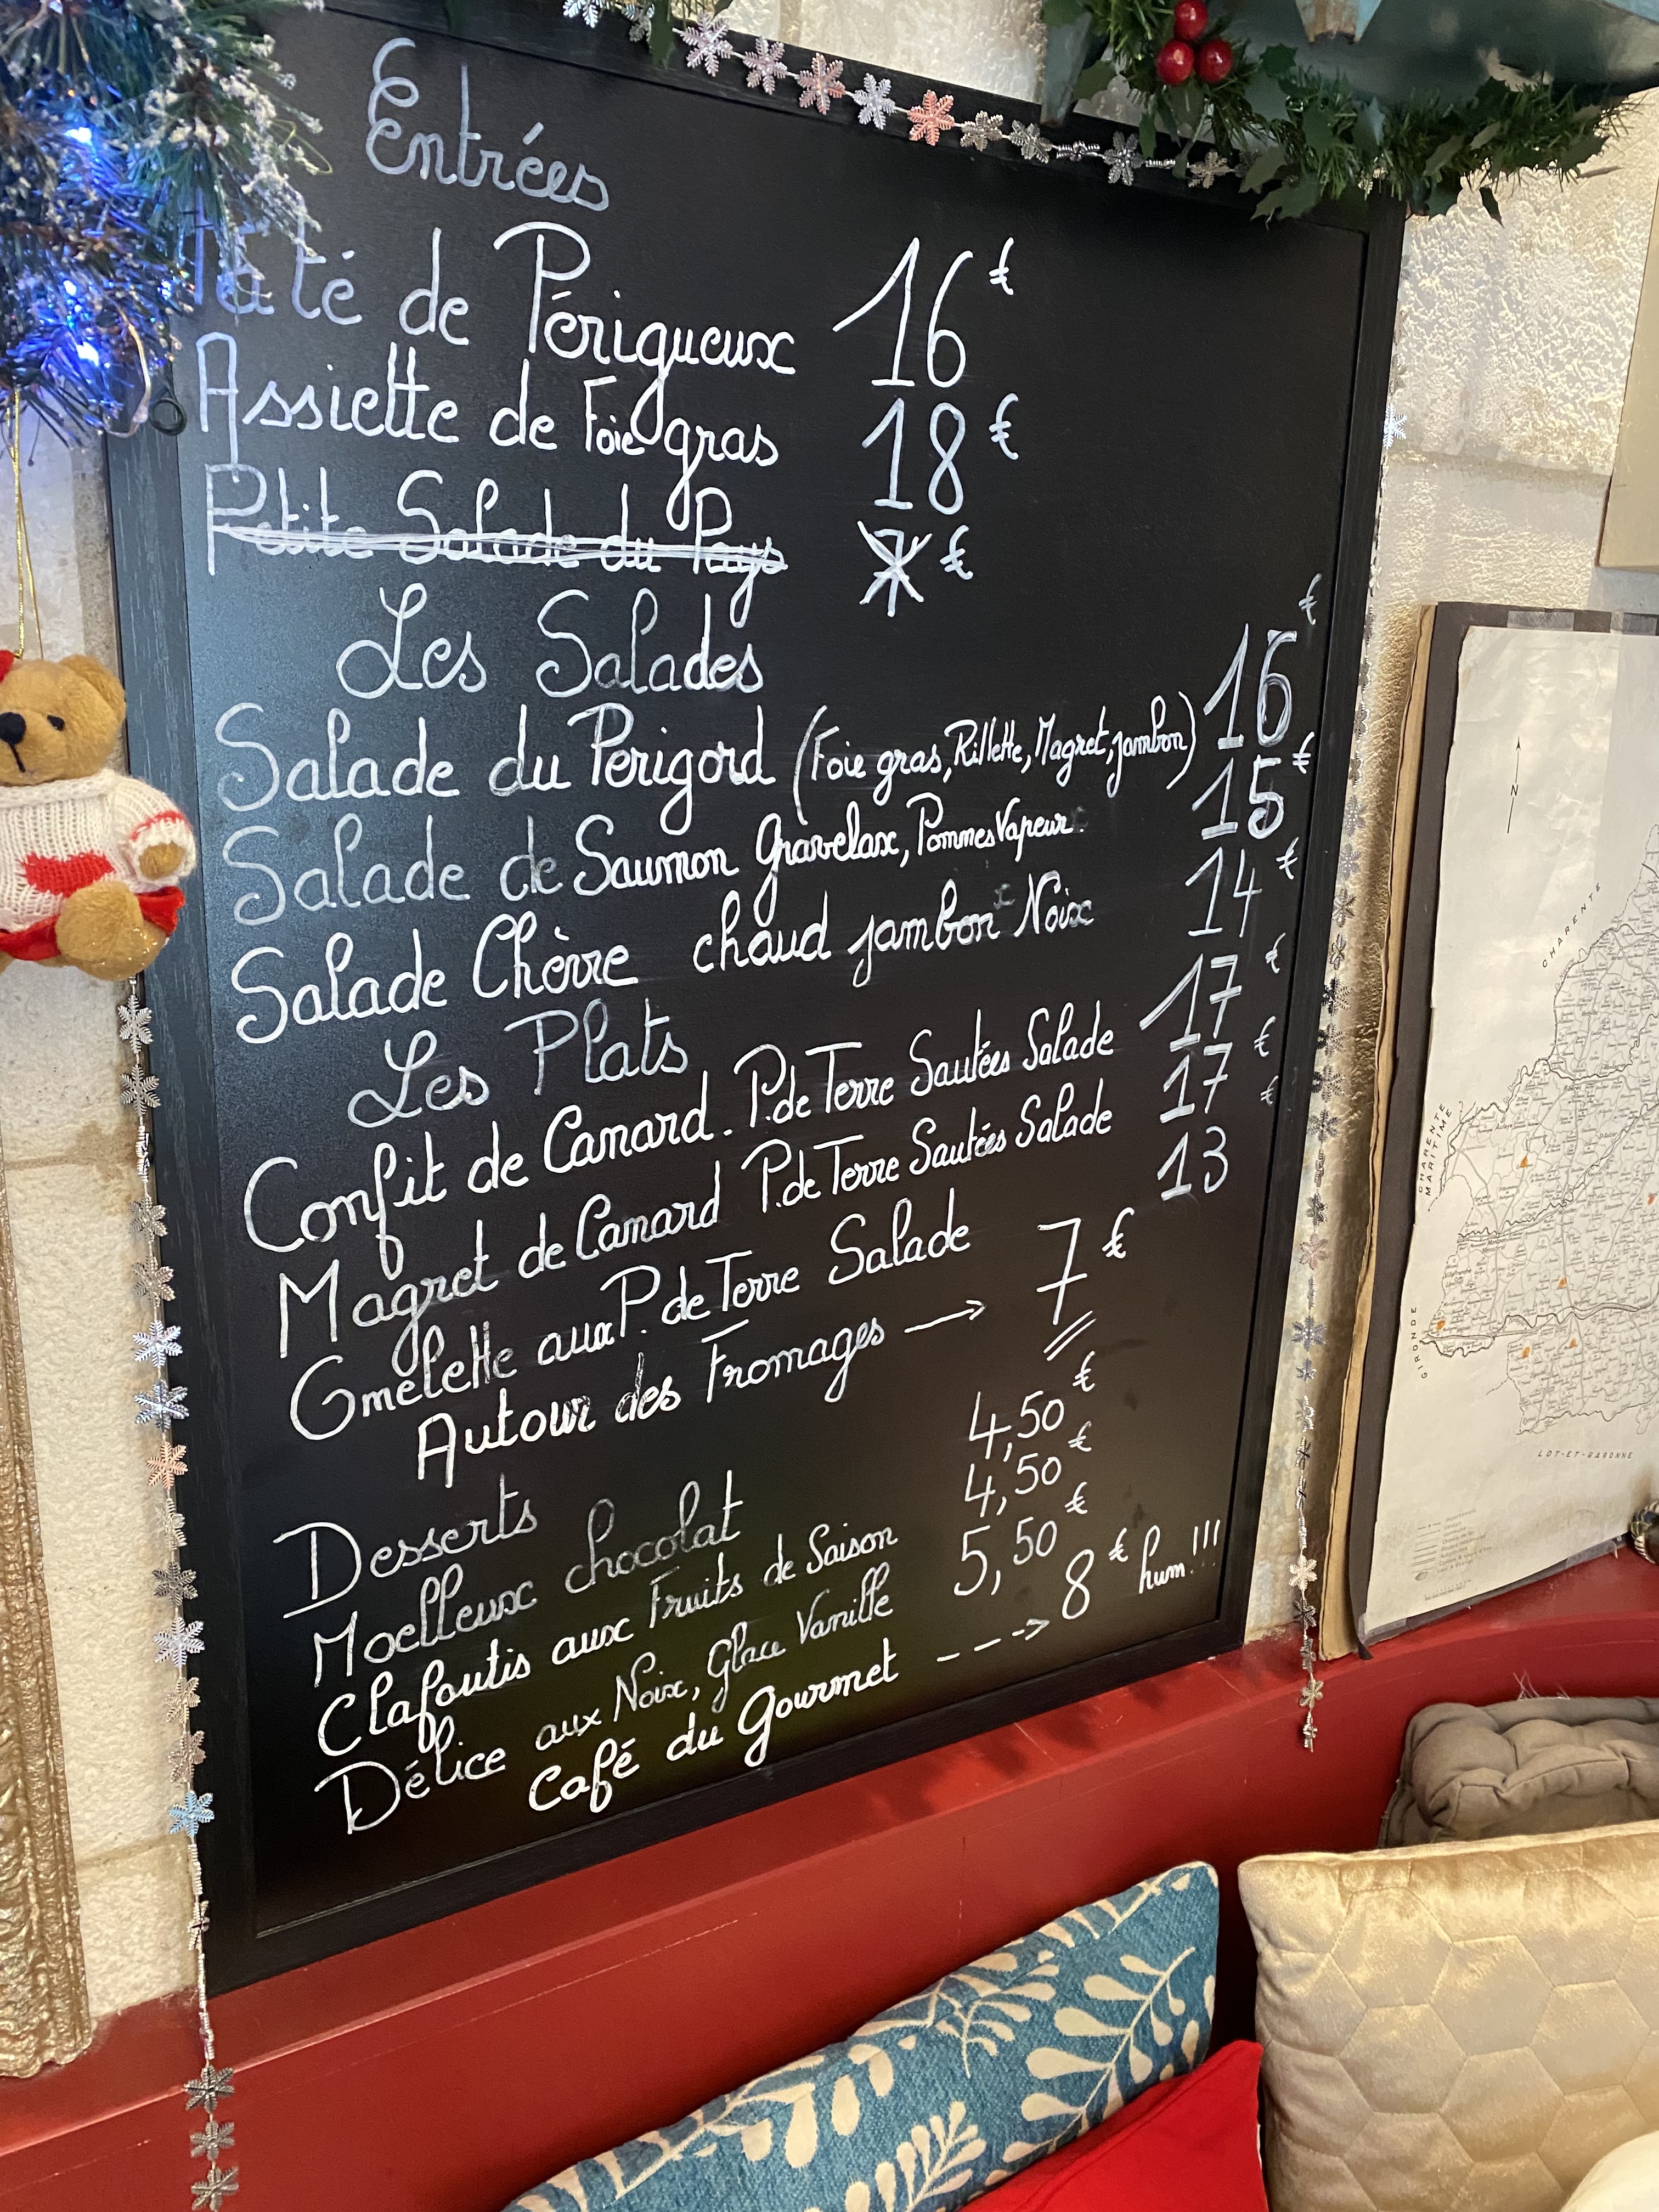 Entrées
Pâté de Périgueux 16€
Assiette de Foie gras 18€
Petite Salade du Pays 7€
Les Salades
Salade du Périgord (Foie gras, Rillette, Magret, jambon) 16€
Salade de Saumon Gravelax, Pommes Vapeur. 15€
Salade Chèvre chaud jambon Noix 14€
Les Plats
Confit de Canard. P. de Terre Sautées Salade 17€
Magret de Canard P. de Terre Sautées Salade 17€
Omelette aux P. de Terre Salade 13€
Autour des Fromages → 7€
Desserts
Moelleux chocolat 4,50€
Clafoutis aux Fruits de Saison 4,50€
Délice aux Noix, Glace Vanille 5,50€
Café du Gourmet ---> 8€ hum!!!
N
CHARENTE
CHARENTE MARITIME
GIRONDE
LOT-ET-GARONNE